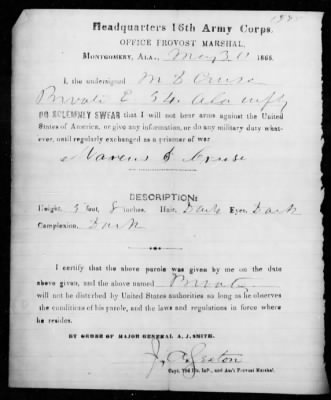 1985
Headquarters 16th Army Corps.
OFFICE PROVOST MARSHAL,
MONTGOMERY, ALA., May 30 1865.
I, the undersigned M D Cruse
Private E 34 Ala infy
DO SOLEMNLY SWEAR that I will not bear arms against the United
States of America, or give any information, or do any military duty what-
ever, until regularly exchanged as a prisoner of war
D Cruse
DESCRIPTION:
Height, 5 feet, 8 inches. Hair, Dark Eyes, Dark
Complexion, Dark
I certify that the above parole was given by me on the date
above given, and the above named Private
will not be disturbed by United States authorities so long as he observes
the conditions of his parole, and the laws and regulations in force where
he resides.
BY ORDER OF MAJOR GENERAL A. J. SMITH.
J. C. Sexton
Capt. Inf., and Ass't Provost Marshal.